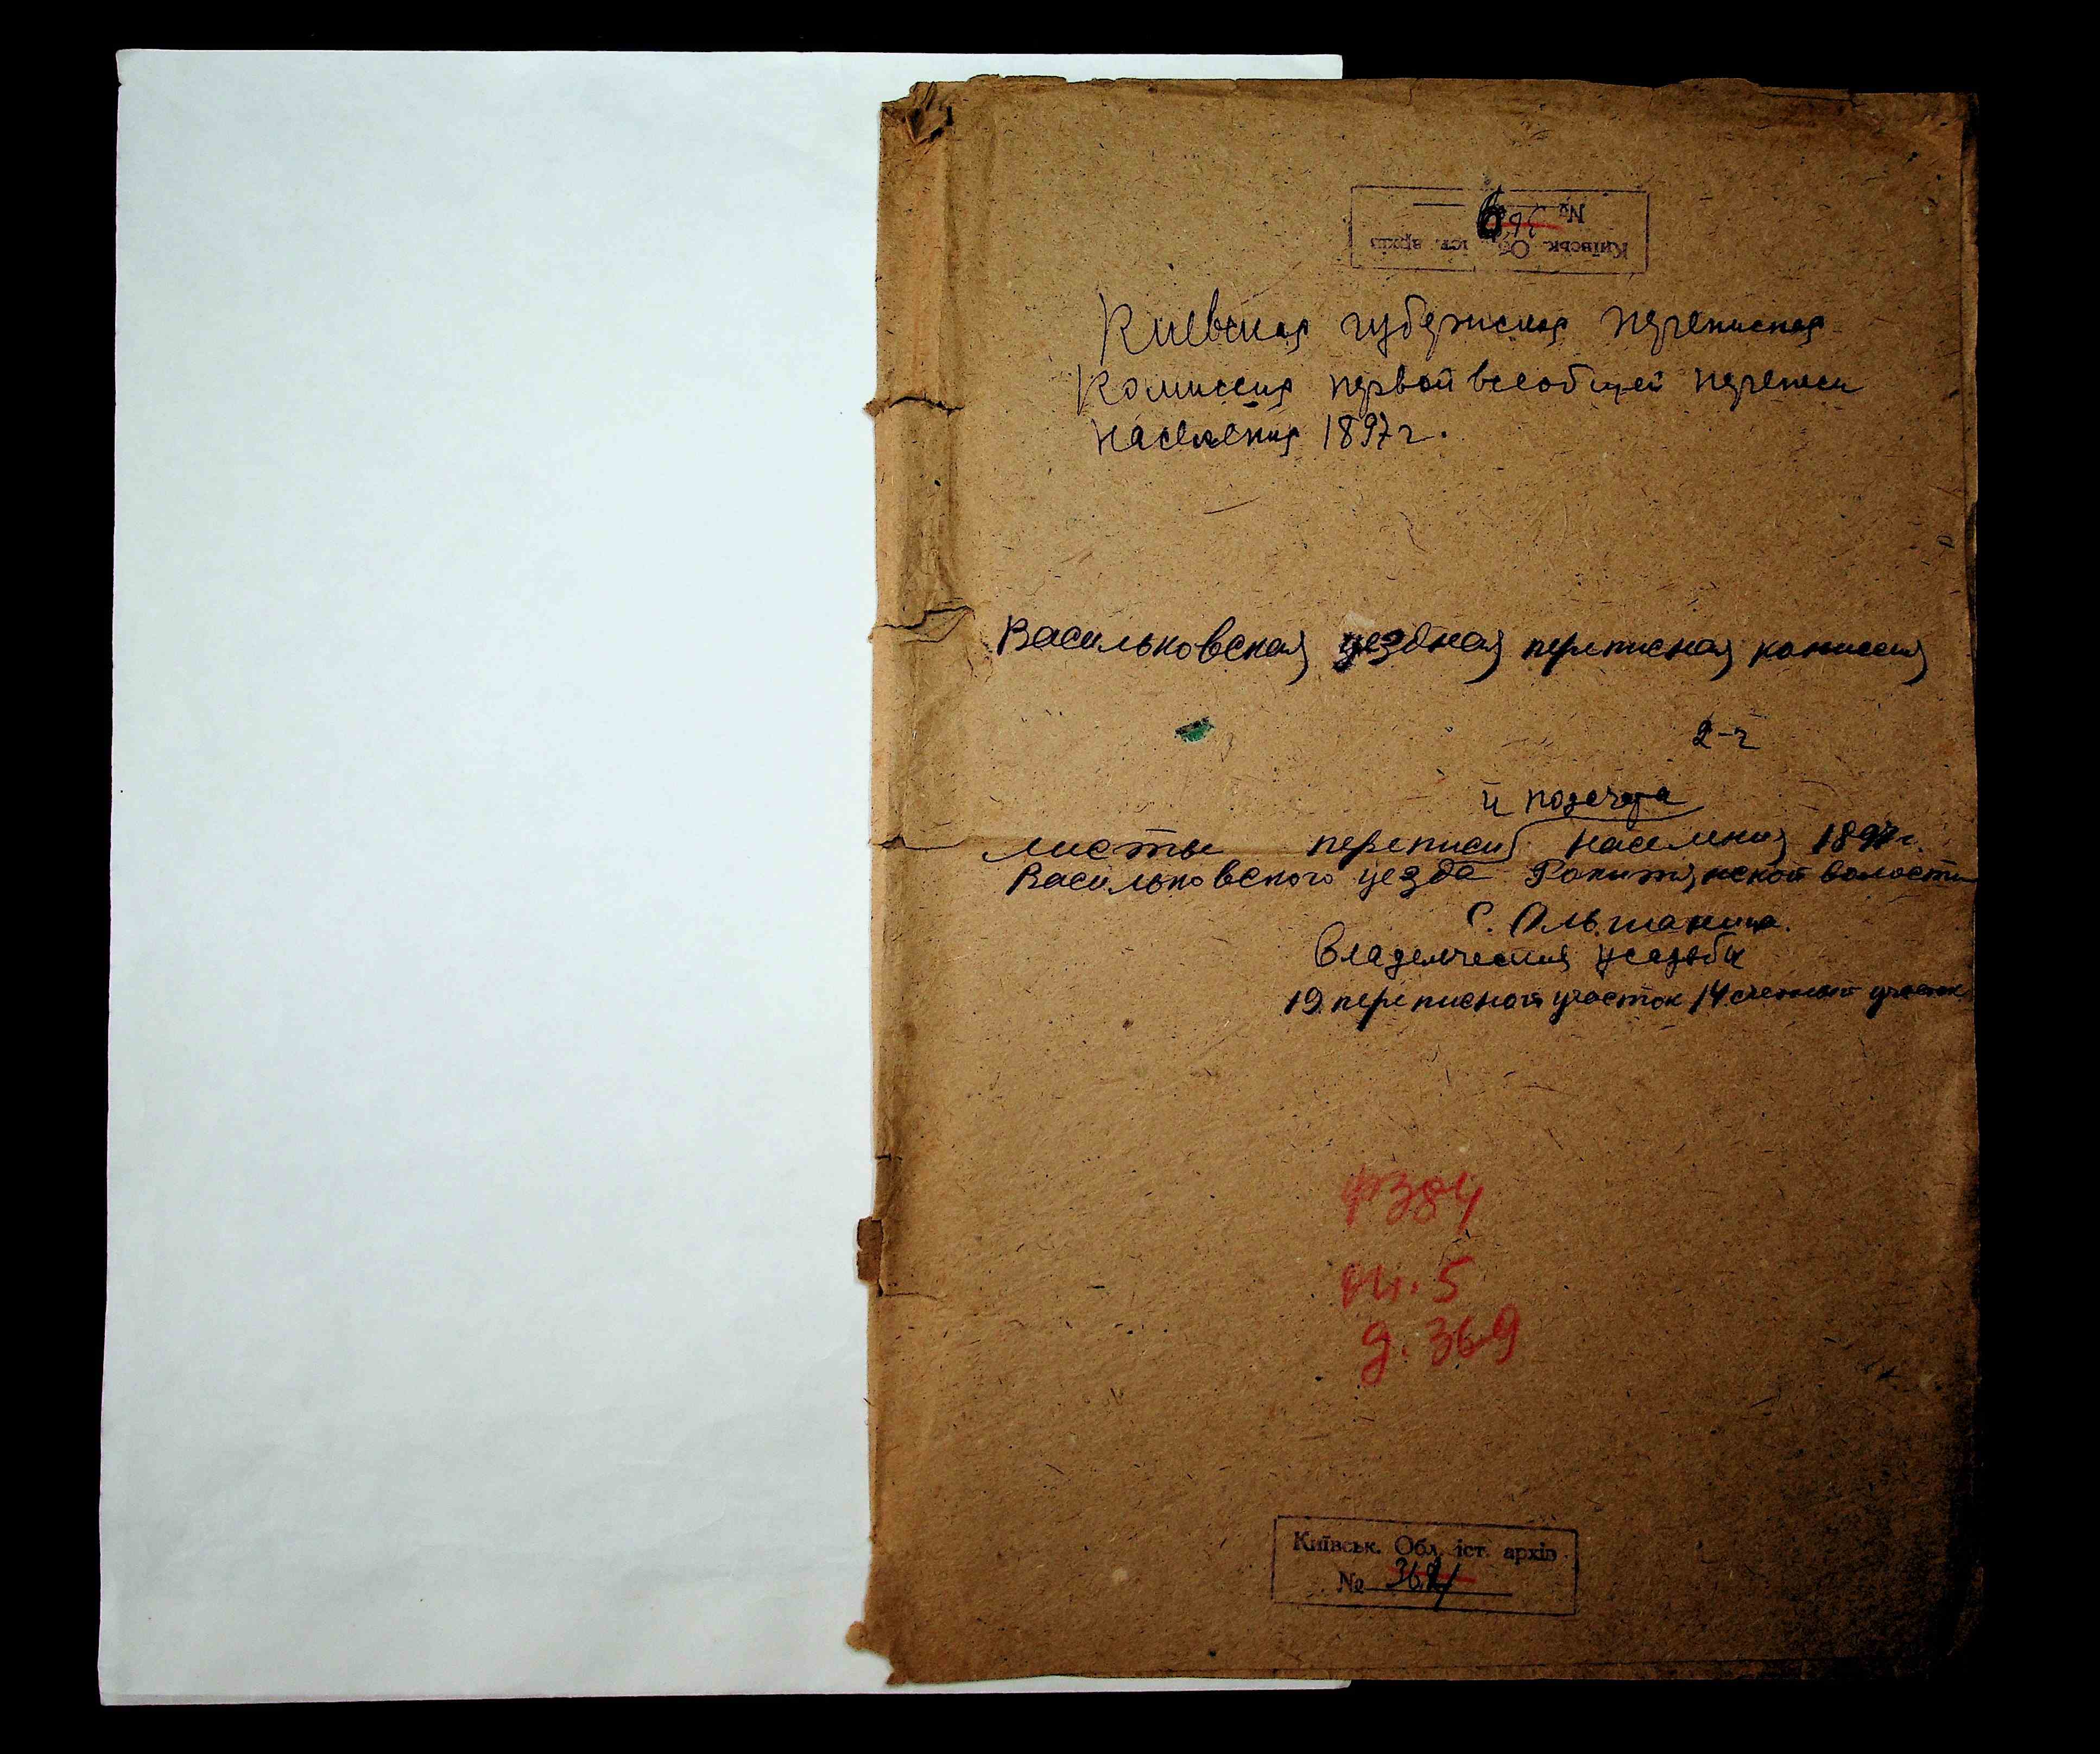 Київськ. Об іст. архів
№ 6
Киевская губернская переписная
комиссия первой всеобщей переписи
населения 1897 г.
Васильковская уездная переписная комиссия
2-г
и подсчета
листы переписи населения 1897 г.
Васильковского уезда Рокитянской волости
с. Ольшаница.
Владельческия усадьбы
19 переписной участок 14 счетный участок
ф 384
оп. 5
д. 369
Київськ. Обл. іст. архів
№